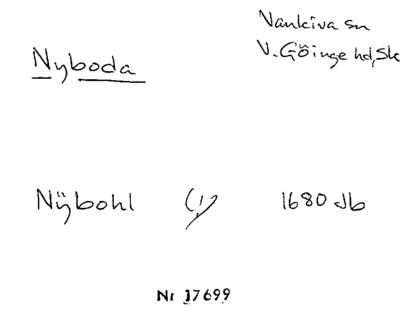 Nyboda
Vankiva sn
V. Göinge hd, Sk
Nÿbohl (1) 1680 Jb
Nr 17699